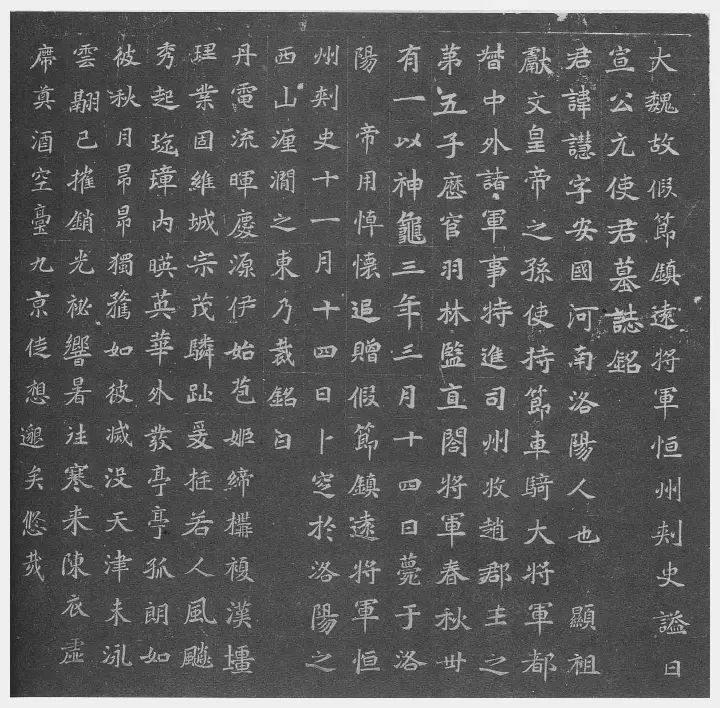 大魏故假節鎮遠將軍恒州刾史謚曰
宣公元使君墓誌銘
君諱譿字安國河南洛陽人也 顯祖
獻文皇帝之孫使持節車騎大將軍都
督中外諸軍事特進司州牧趙郡王之
第五子歷官羽林監直閤將軍春秋卅
有一以神龜三年三月十四日薨于洛
陽 帝用悼懷追贈假節鎮遠將軍恒
州刾史十一月十四日卜窆於洛陽之
西山瀍澗之東乃裁銘曰
丹電流暉慶源伊始苞姬締構複漢壃
理業固維城宗茂驎趾爰挺若人風飈
秀起琁璋內暎英華外發亭亭孤朗如
彼秋月昂昂獨鶩如彼滅没天津未泳
雲翮已摧銷光祕響暑注寒来陳衣虛
席奠酒空臺九京徒想邈矣悠哉